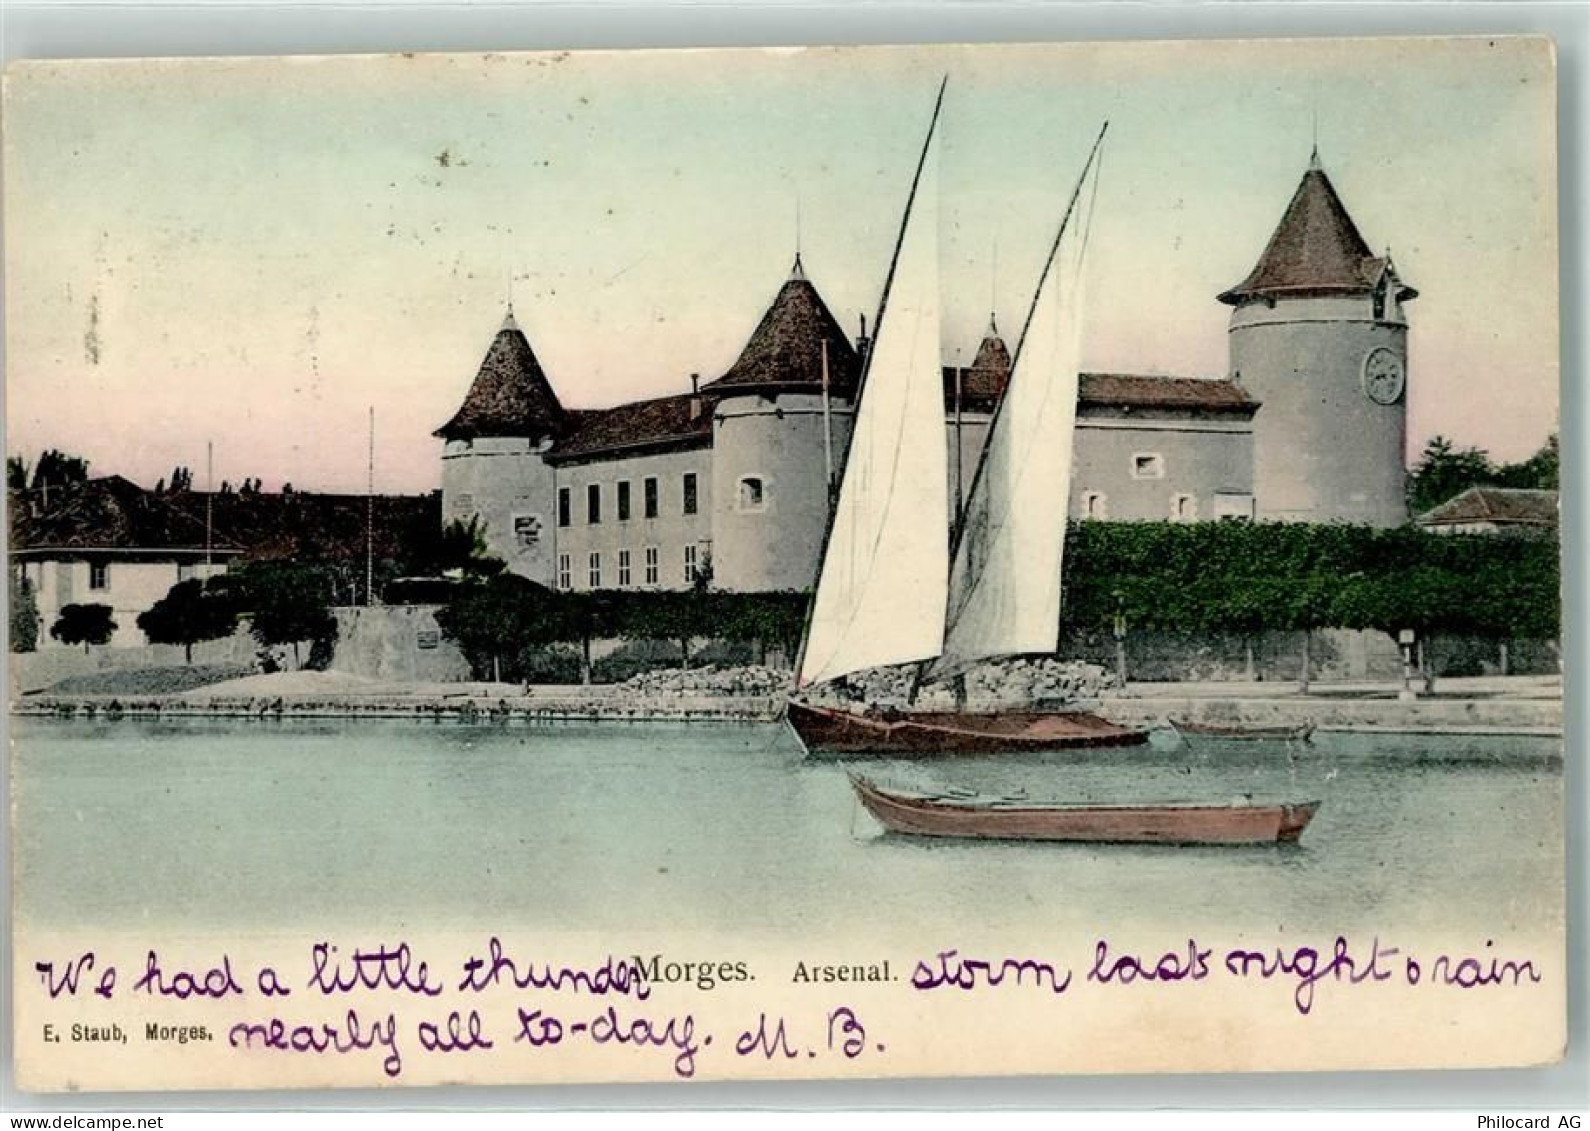 We had a little thunder Morges. Arsenal. storm last night & rain
E. Staub, Morges. nearly all to-day. M. B.
www.delcampe.net Philocard AG